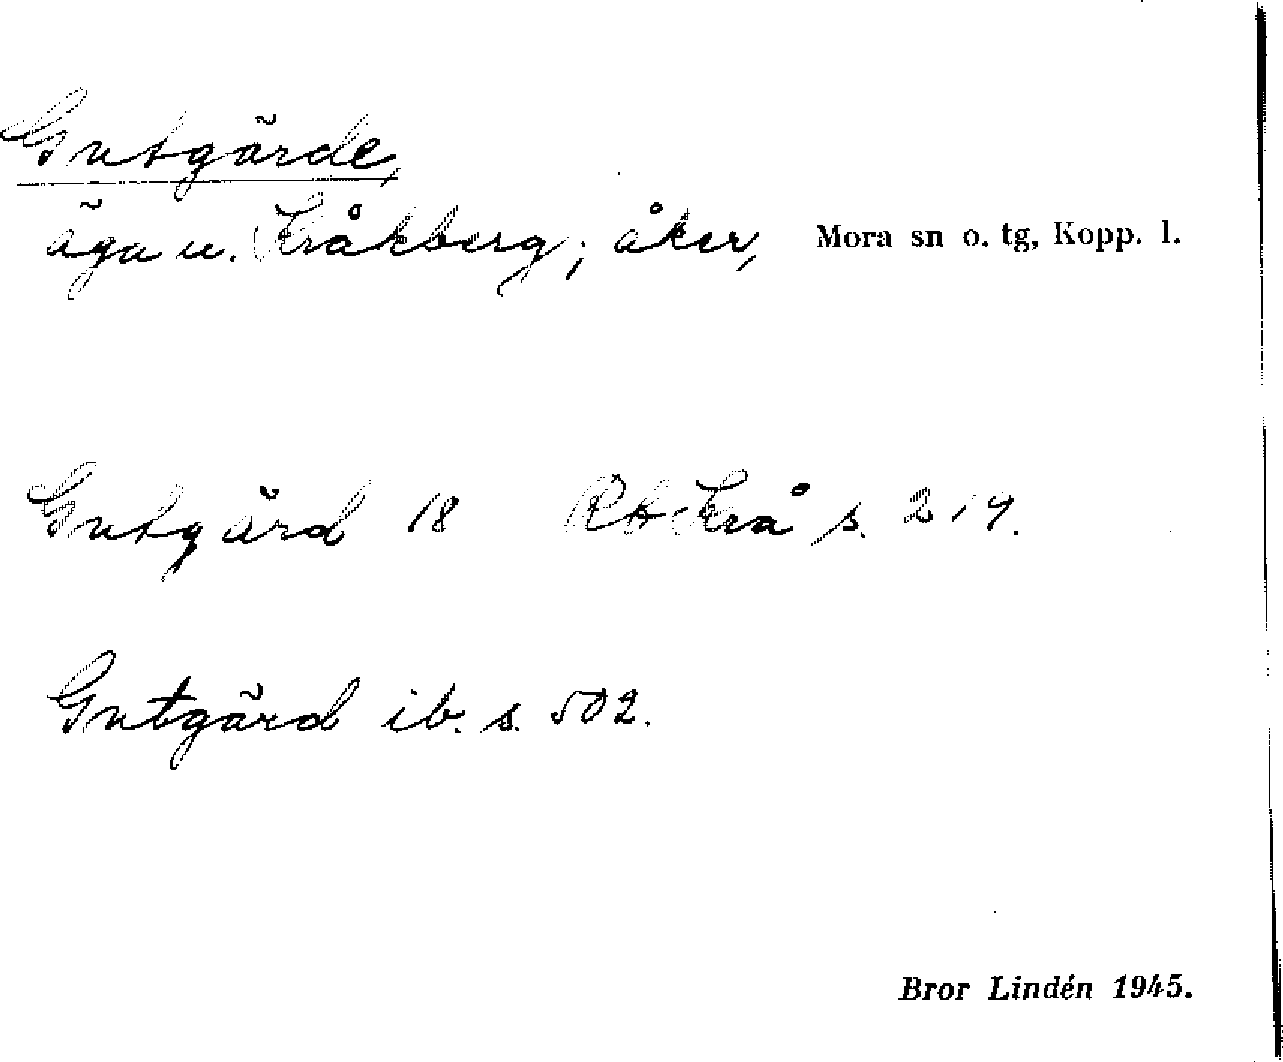 Gutgärde,
äga u. Kråkberg; åker, Mora sn o. tg, Kopp. l.
Gutgärd 18 RA Krå s. 219.
Gutgärd ib. s. 502.
Bror Lindén 1945.